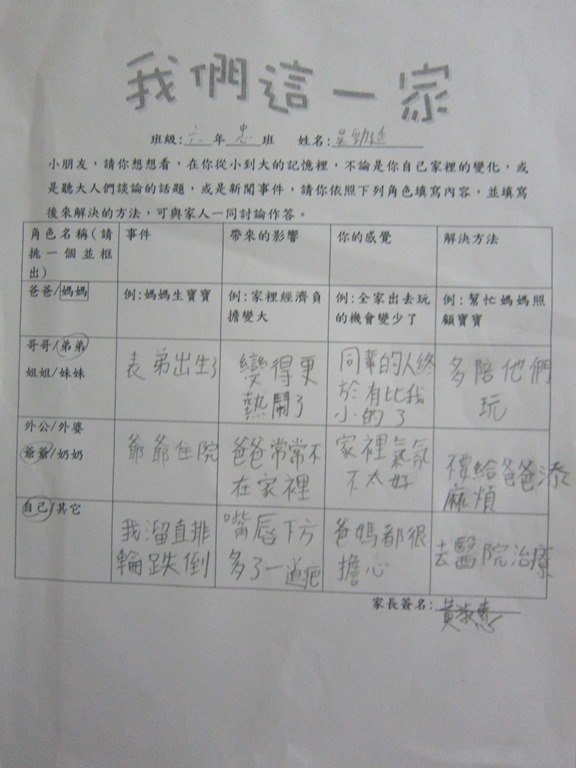 我們這一家
班級:六年忠班 姓名:吳勁廷
小朋友，請你想想看，在你從小到大的記憶裡，不論是你自己家裡的變化，或
是聽大人們談論的話題，或是新聞事件，請你依照下列角色填寫內容，並填寫
後來解決的方法，可與家人一同討論作答。
角色名稱(請挑一個並框出) 事件 帶來的影響 你的感覺 解決方法
爸爸/媽媽 例:媽媽生寶寶 例:家裡經濟負擔變大 例:全家出去玩的機會變少了 例:幫忙媽媽照顧寶寶
哥哥/弟弟
姐姐/妹妹 表弟出生了 變得更熱鬧了 同輩的人終於有比我小的了 多陪他們玩
外公/外婆
爺爺/奶奶 爺爺住院 爸爸常常不在家裡 家裡氣氛不太好 不要給爸爸添麻煩
自己/其它 我溜直排輪跌倒 嘴唇下方多了一道疤 爸媽都很擔心 去醫院治療
家長簽名: